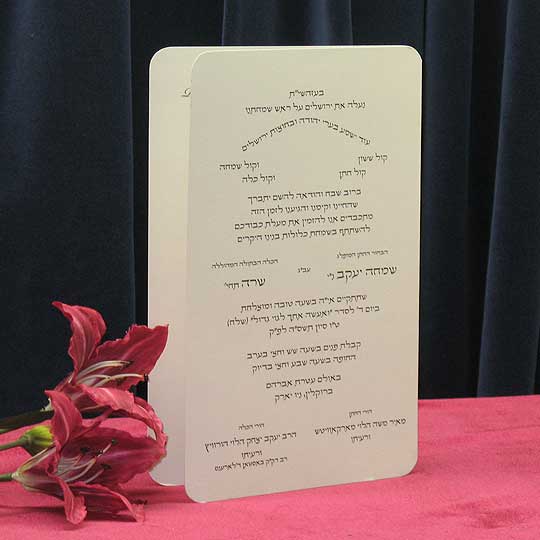 בעזהשי"ת
נעלה את ירושלים על ראש שמחתנו
עוד ישמע בערי יהודה ובחוצות ירושלים
קול ששון וקול שמחה
קול חתן וקול כלה
ברוב שבח והודאה להשם יתברך
שהחיינו וקימנו והגיענו לזמן הזה
מתכבדים אנו להזמין את מעלת כבודכם
להשתתף בשמחת כלולות בנינו היקרים
הבחור החתן המופלג הכלה הבתולה המהוללה
שמחה יעקב ני' עב"ג שרה תחי'
שתתקיים אי"ה בשעה טובה ומוצלחת
ביום ד' לסדר "ואעשה אתך לגוי גדול" (שלח)
ט"ו סיון תשס"ה לפ"ק
קבלת פנים בשעה שש וחצי בערב
החופה בשעה שבע וחצי בדיוק
באולם עטרת אברהם
ברוקלין, ניו יארק
הורי החתן הורי הכלה
מאיר משה הלוי מארקאוויטש הרב יעקב יצחק הלוי הורוויץ
ורעיתו ורעיתו
רב דק"ק באסטאן ד'לארענס